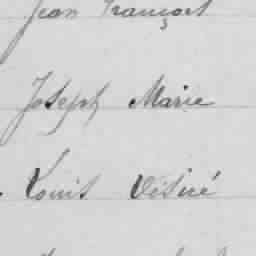 Jean François
Joseph Marie
Louis Désiré